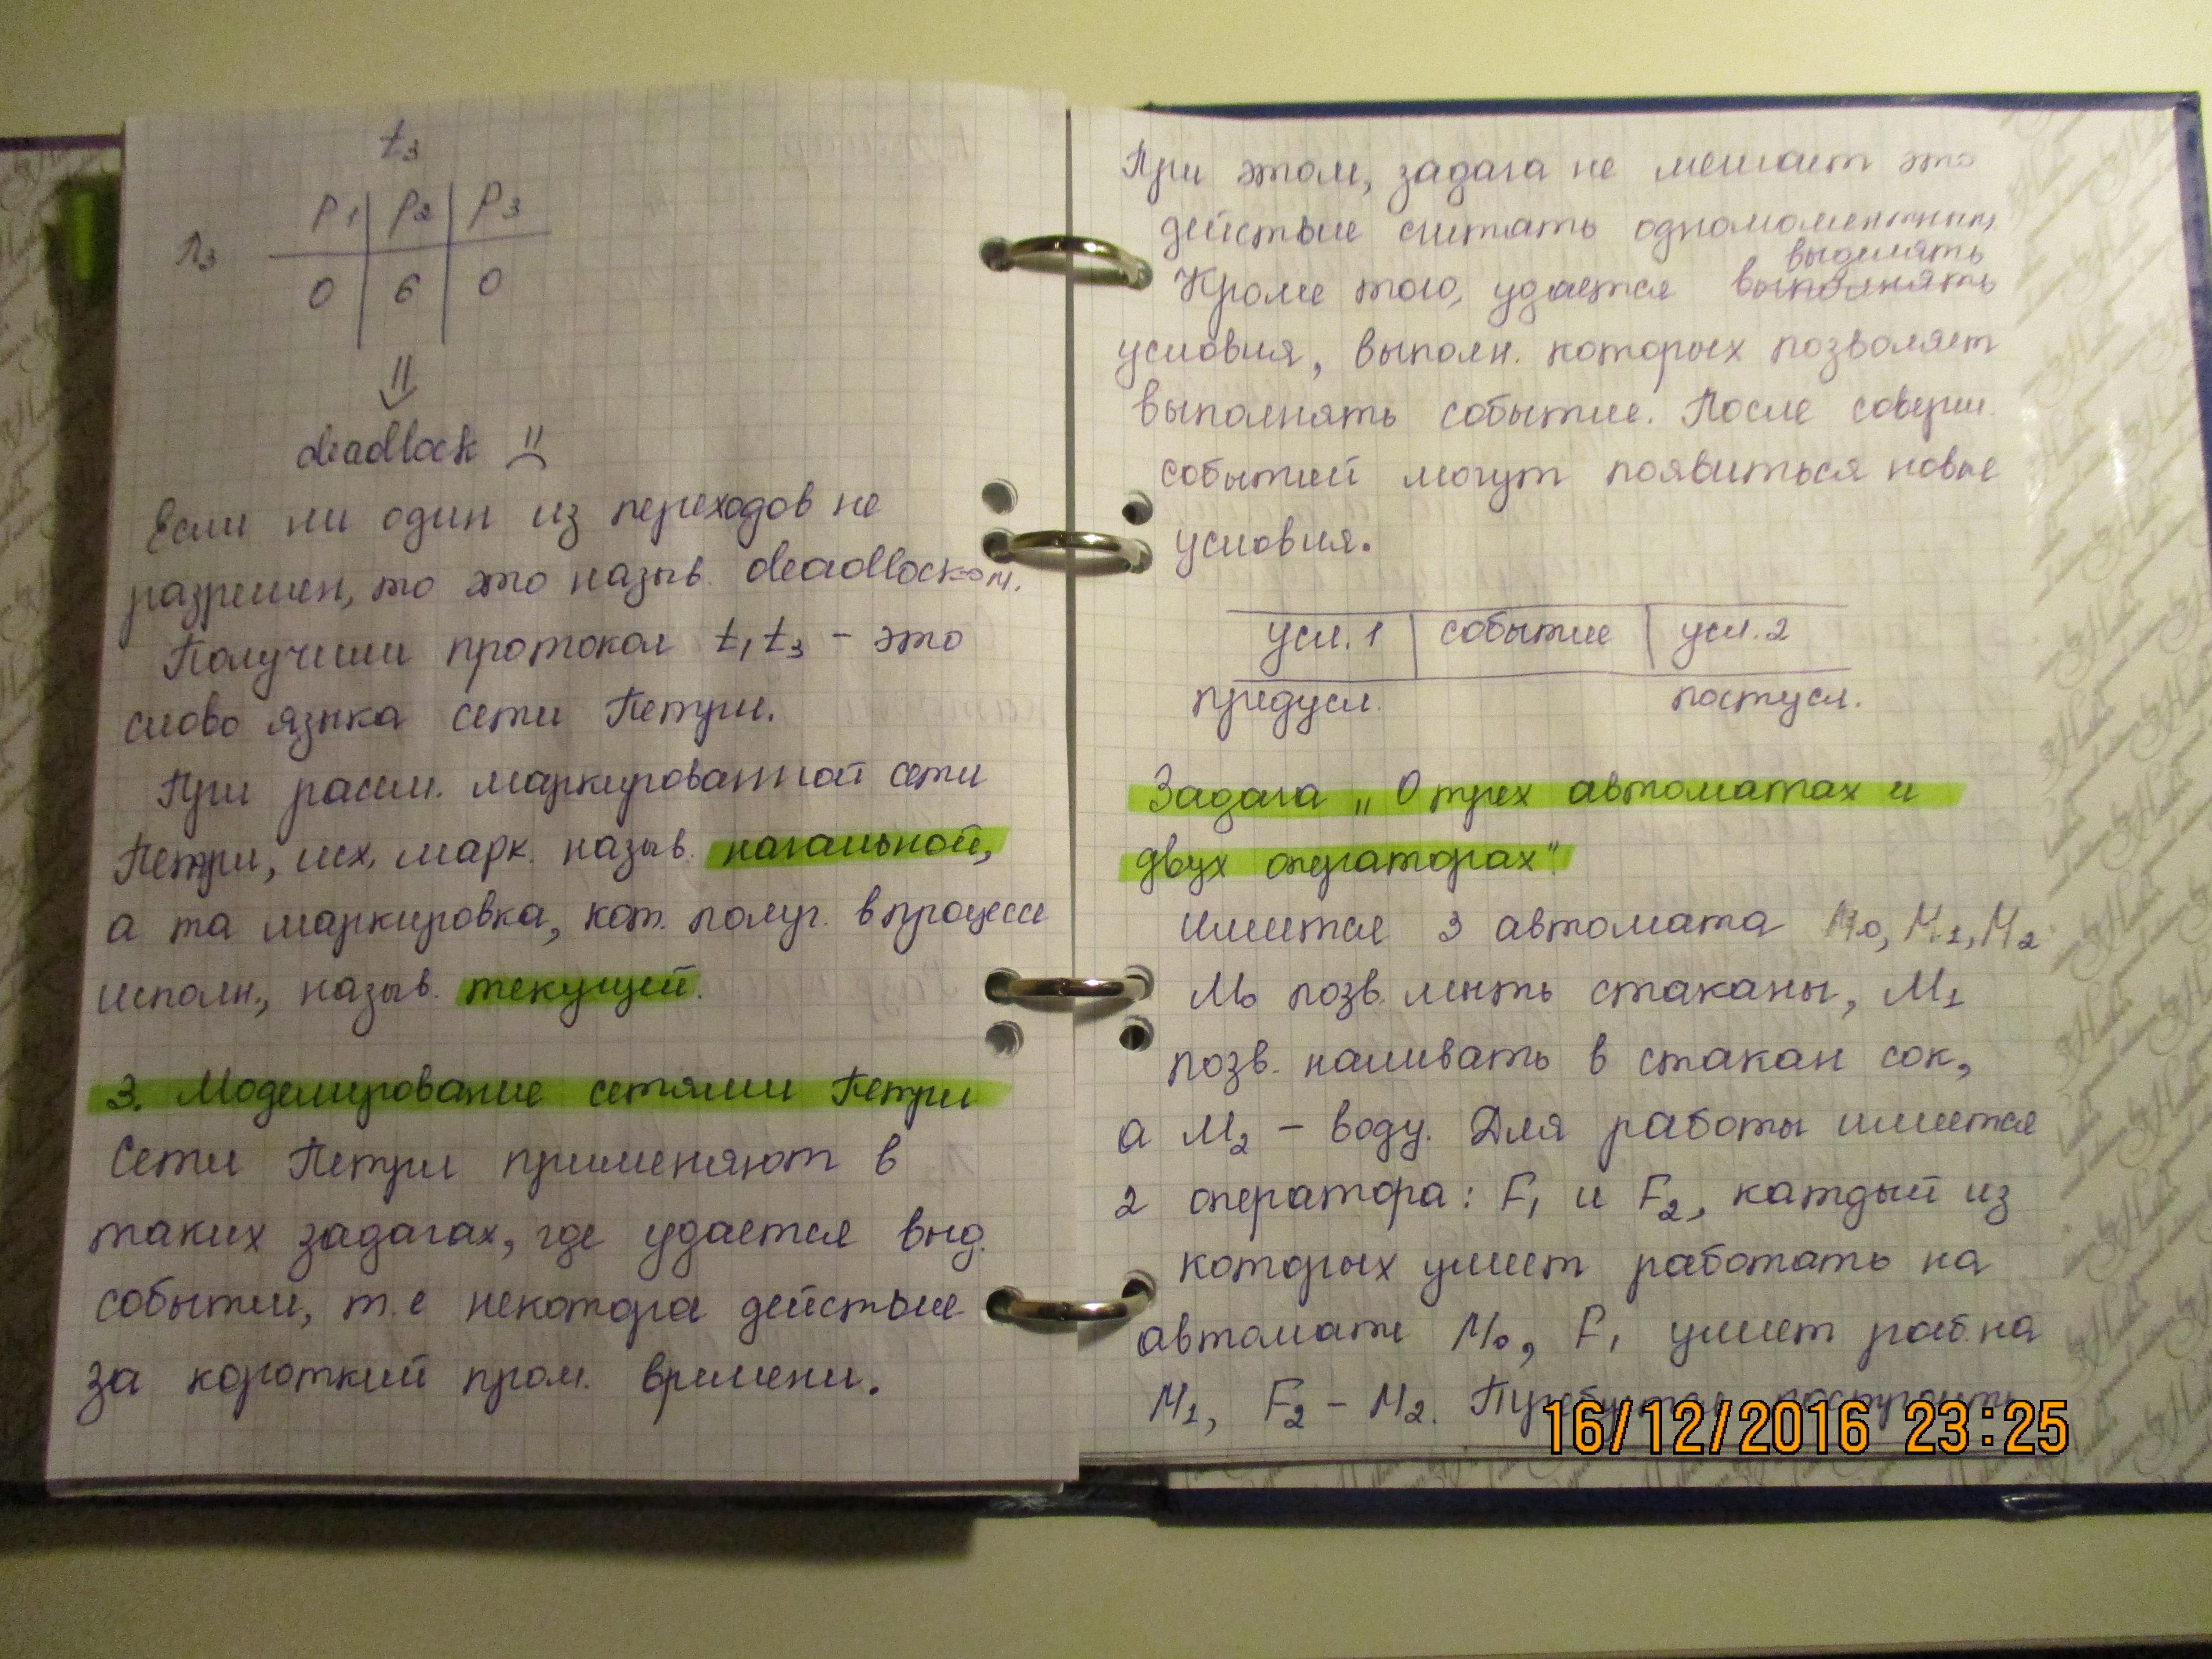 t₃
P₁ | P₂ | P₃
0 | 6 | 0
deadlock
Если ни один из переходов не
разрешен, то это назыв. deadlockом.
Получили протокол t₁t₃ – это
слово языка сети Петри.
При рассм. маркированной сети
Петри, исх. марк. назыв. начальной,
а та маркировка, кот. получ. в процессе
исполн., назыв. текущей.
3. Моделирование сетями Петри
Сети Петри применяют в
таких задачах, где удается выд.
событии, т.е некотора действие
за короткий пром. времени.
При этом, задача не мешает это
действие считать одномоментным,
выделять
Кроме того, удается выполнять
условия, выполн. которых позволяет
выполнять событие. После соверш.
событий могут появиться новые
условия.
усл. 1 | событие | усл. 2
предусл. постусл.
Задача „О трех автоматах и
двух операторах"
Имеется 3 автомата М₀, М₁, М₂
М₀ позв. лить стаканы, М₁
позв. наливать в стакан сок,
а М₂ – воду. Для работы имеется
2 оператора: F₁ и F₂, каждый из
которых умеет работать на
автомате М₀, F₁ умеет раб. на
М₁, F₂ – М₂.
16/12/2016 23:25